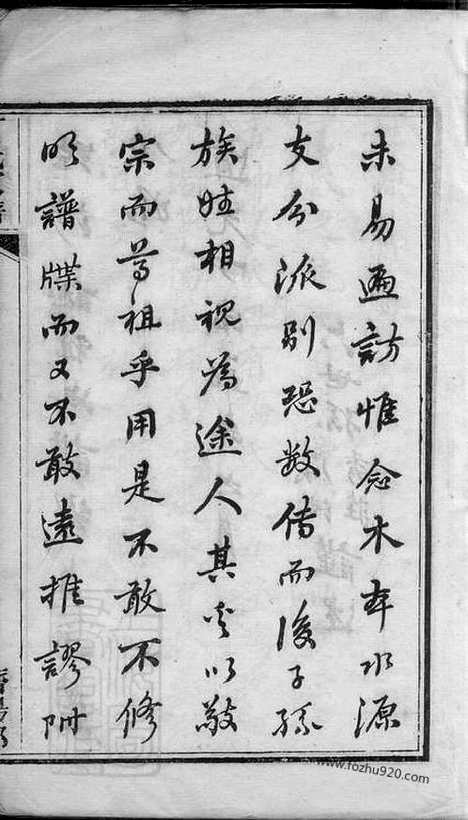 未易遍訪惟念木本水源
支分派別恐數傳而後子孫
族姓相視為途人其曷以敬
宗而尊祖乎用是不敢不修
明譜牒而又不敢遠推謬附
www.fozhu920.com